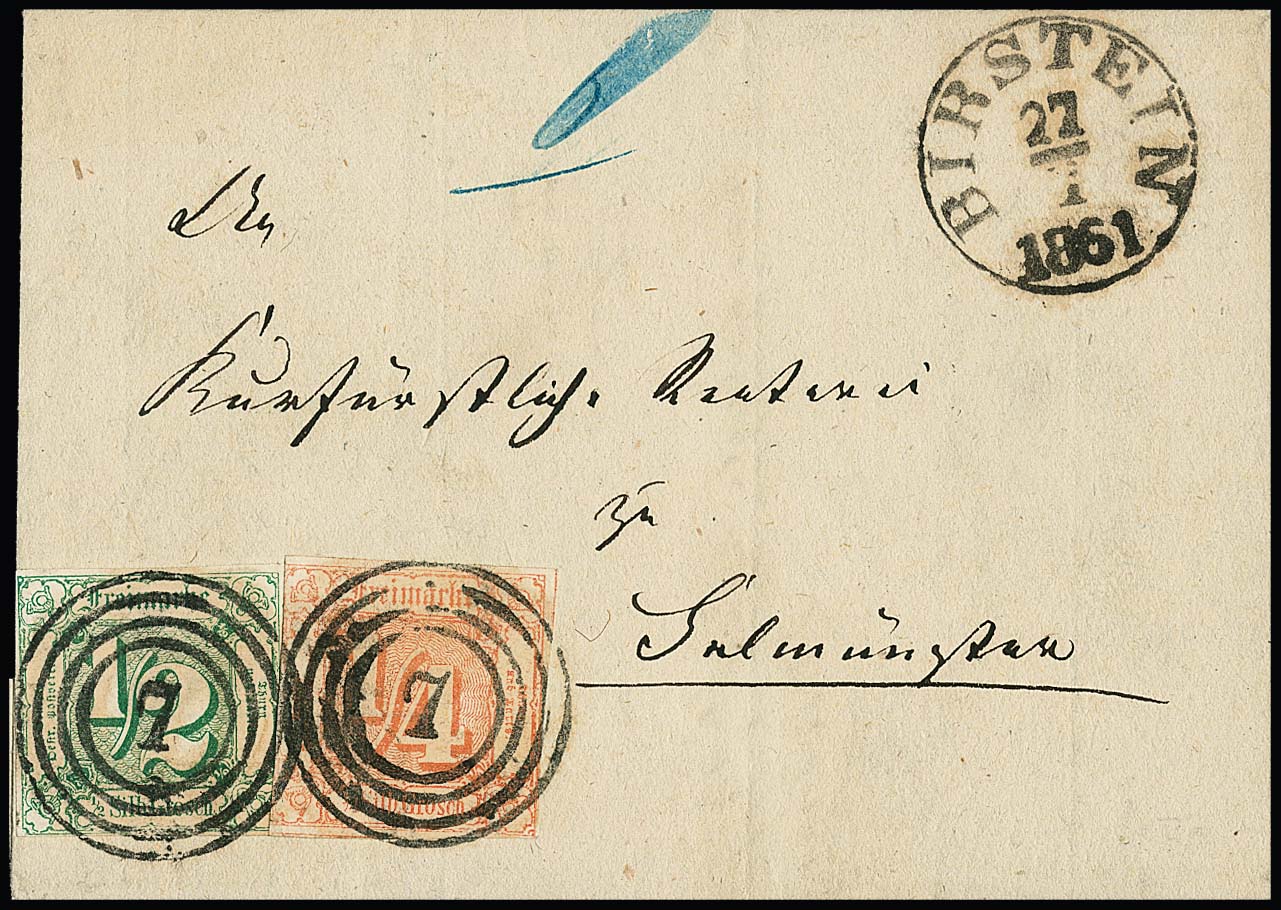 BIRSTEIN
27
1
1861
Kurfürstliche Renterei
zu
Salmünster
Freimarke
1/2
7
1/2 Silb.Grosch.
Freimarke
1/4
7
Silb.Grosch.